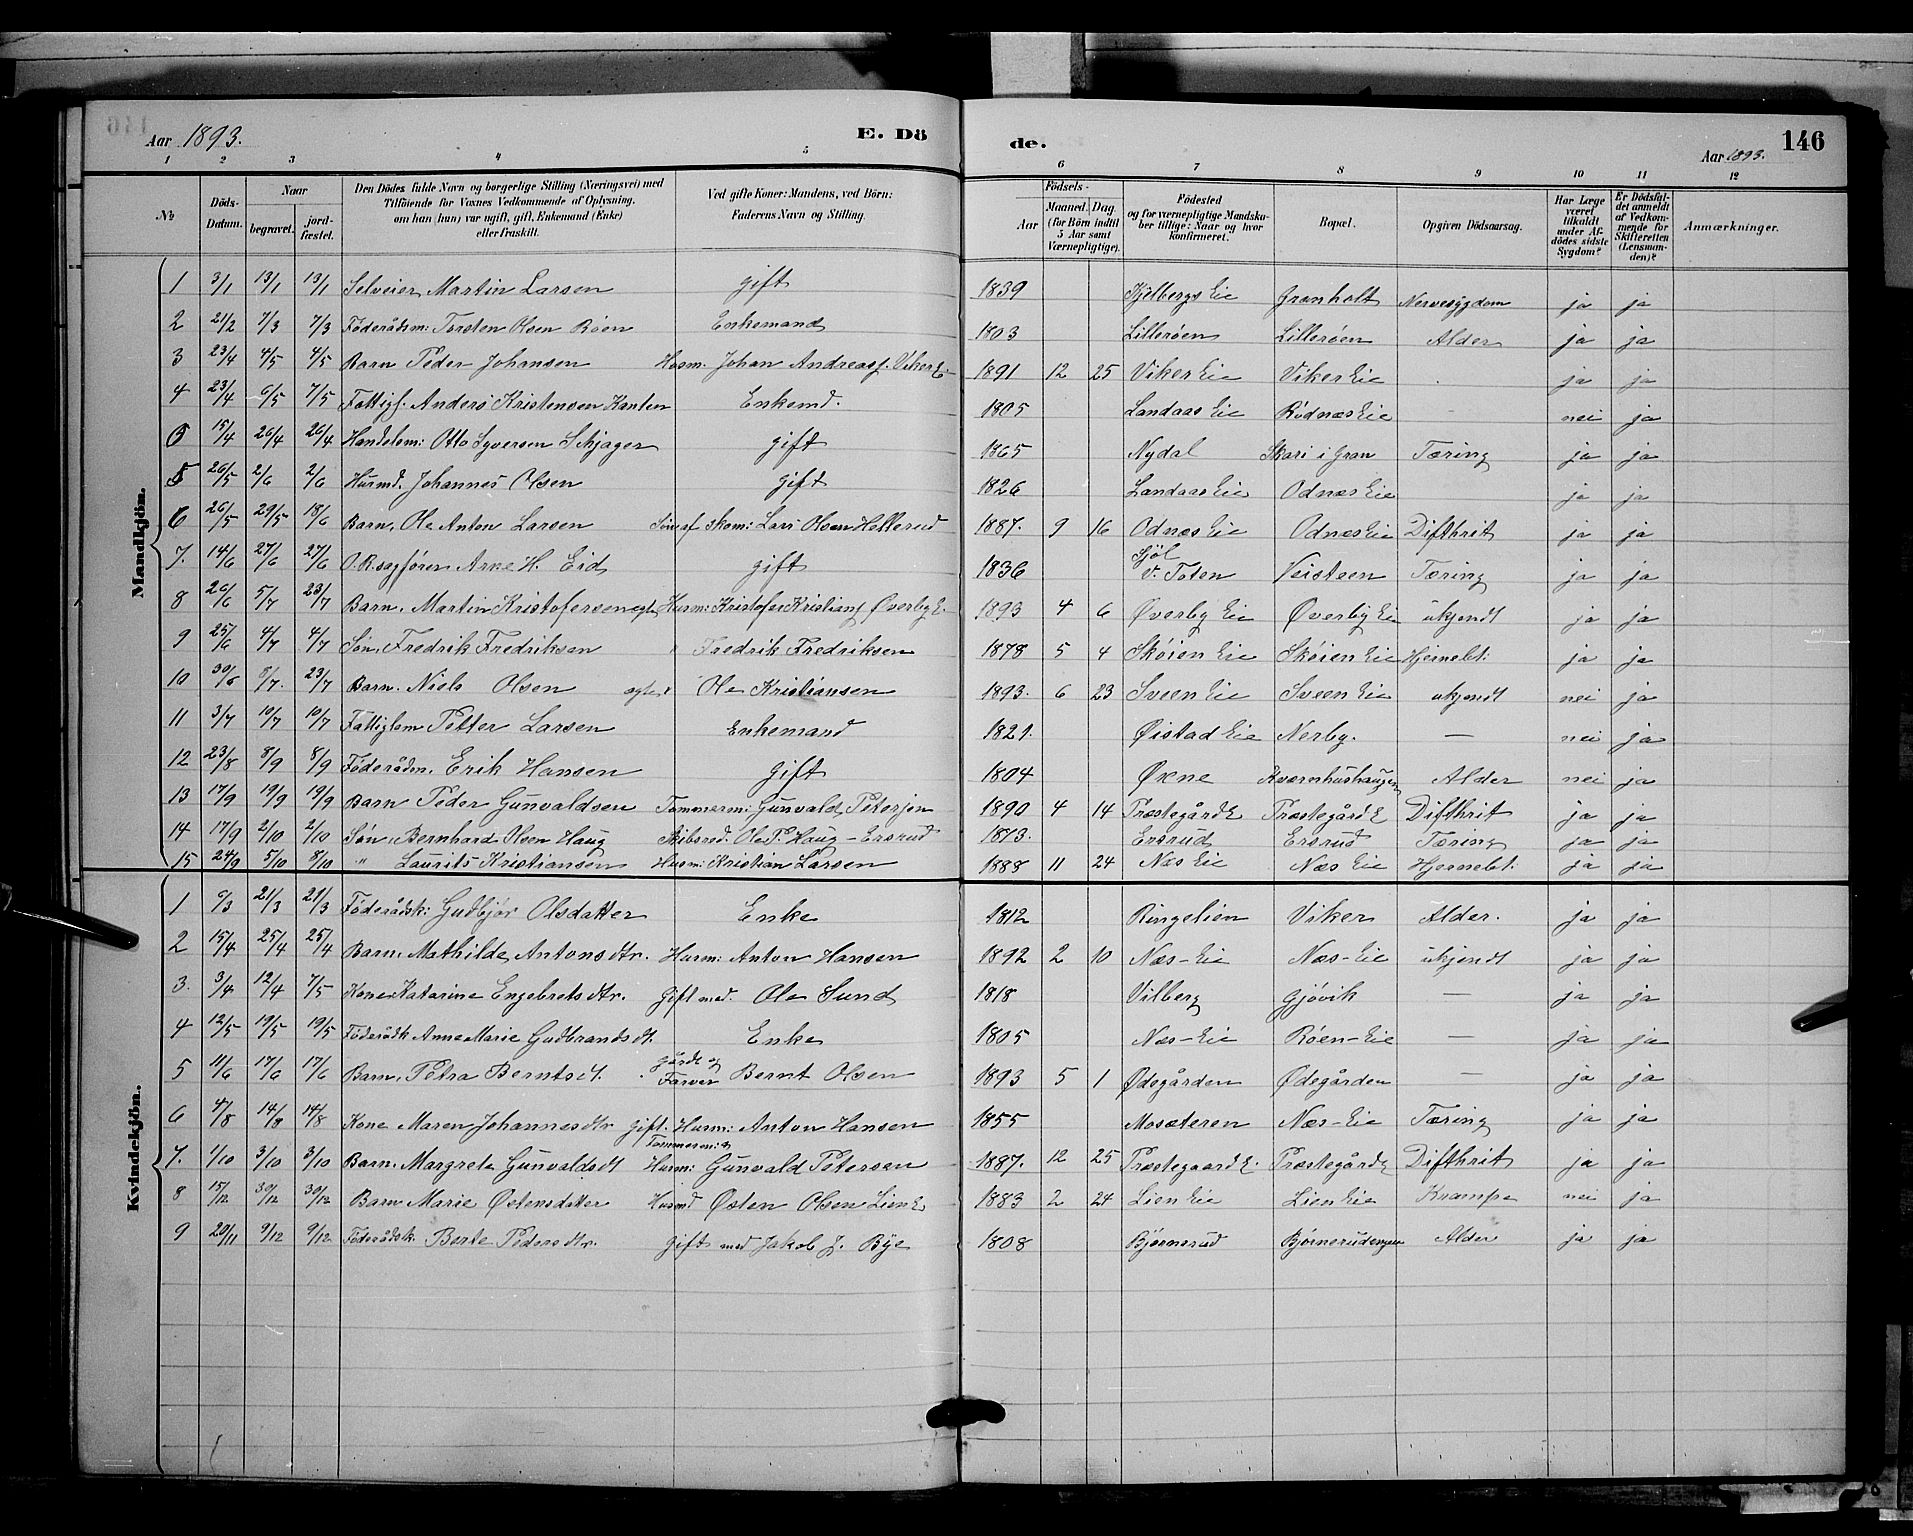 Aar 1893. E. Dö de. Aar 1893. 146
1 2 3 4 5 6 7 8 9 10 11 12
No Döds-Datum. Naar begravet. jord-fæstet. Den Dödes fulde Navn og borgerlige Stilling (Næringsvei) med Tilföiende for Voxnes Vedkommende af Oplysning, om han (hun) var ugift, gift, Enkemand (Enke) eller fraskilt. Ved gifte Koner: Mandens, ved Börn: Faderens Navn og Stilling. Födsels- Aar Maaned. Dag. (for Börn indtil 5 Aar samt Værnepligtige). Födested og for værnepligtige Mandska-ber tillige: Naar og hvor konfirmeret. Bopæl. Opgiven Dödsaarsag. Har Læge været tilkaldt under Af-dödes sidste Sygdom? Er Dödsfal-det anmeldt af Vedkom-mende for Skifteretten (Lensman-den)? Anmærkninger.
Mandkjön.
1 3/1 13/1 13/1 Selveier Martin Larsen gift 1839 Kjelbergs Eie Granholt Nervesygdom ja ja
2 21/2 7/3 7/3 Föderådsm: Torsten Olsen Røen Enkemand 1803 Lillerøen Lillerøen Alder ja ja
3 23/4 4/5 4/5 Barn Peder Johansen Husm. Johan Andreasf. Viker E. 1891 12 25 Viker Eie Viker Eie . ja ja
4 23/4 6/5 7/5 Fattigf. Anders Kristensen Kanten Enkemd. 1805 Landaas Eie Rödnæs Eie nei ja
15/4 26/4 26/4 Handelsm: Otto Syversen Skjager gift 1865 Nydal Skari i Gran Tæring ja ja
5 26/5 2/6 2/6 Husmd. Johannes Olsen gift 1826 Landaas Eie Odnæs Eie ja ja
6 26/5 29/5 18/6 Barn, Ole Anton Larsen Søn af Skom: Lars Olsen Hellerud 1887. 9 16 Odnæs Eie Odnæs Eie Difthrit ja ja
7. 14/6 27/6 27/6 O.R.sagförer Arne H. Eid gift 1836 V. Toten Veisteen Tæring ja ja
8 26/6 5/7 23/7 Barn. Martin Kristofersen egte Husm: Kristofer Kristians Øverby E. 1893 4 6 Øverby Eie Øverby Eie ukjendt ja ja
9 25/6 4/7 4/7 Søn, Fredrik Fredriksen " Fredrik Fredriksen 1878 5 4 Skøien Eie Skøien Eie Hjernebt. ja ja
10 30/6 8/7. 23/7 Barn. Niels Olsen Ole Kristiansen 1893. 6 23 Sveen Eie Sveen Eie ukjendt nei ja
11 3/7 10/7 10/7 Fattiglem Petter Larsen Enkemand 1821. Øistad Eie Nerby. — nei ja
12 23/8 8/9 8/9 Föderådm. Erik Hansen gift 1804 Øxne Kværnhushaugen Alder nei ja
13 17/9 19/9 19/9 Barn Peder Gunvaldsen Tømmerm: Gunvald Petersen 1890 4 14 Præstegård E Præstegård E Difthrit ja ja
14 17/9 2/10 2/10 Søn, Bernhard Olsen Haug Skibsred. Ole P. Haug - Ersrud 1873. Ersrud Ersrud Tæring ja ja
15 24/9 5/10 8/10 " Laurits Kristiansen Husm: Kristian Larsen 1888 11 24 Næs Eie Næs Eie Hjernebt. ja ja
Kvindekjön.
1 6/3 21/3 21/3 Föderådsk: Gudbjör Olsdatter Enke 1812 Ringelien Viker Alder. ja ja
2 15/4 25/4 25/4 Barn, Mathilde Antonsdtr. Husm: Anton Hansen 1892 2 10 Næs-Eie Næs-Eie ukjendt ja ja
3. 3/4 12/4 7/5 Kone Katarine Engebretsdtr. Gift med. Ole Sund 1818 Vilberg Gjövik — ja ja
4 12/5 19/5 19/5 Föderådk Anne Marie Gudbrandsdt. Enke 1805 Næs-Eie Røen-Eie — ja ja
5 11/6 17/6 17/6 Barn, Petra Berntsdt. Gårdb og Farver Bernt Olsen 1893 5 1 Ødegården Ødegården — ja ja
6 4/8 14/8 14/8 Kone Maren Johannesdtr Gift. Husm: Anton Hansen 1855 Mosæteren Næs-Eie Tæring ja ja
7. 1/10 3/10 3/10 Barn, Margrete Gunvaldsdt Tømmerm: & Husm: Gunvald Petersen 1887. 12 25 Præstegaard E. Præstegård E Difthrit ja ja
8 15/12 30/12 30/12 Barn Marie Østensdatter Husmd Østen Olsen Lien E. 1883 2 24 Lien Eie Lien Eie Krampe nei ja
9 20/11 9/12 9/12 Föderådsk Berte Pedersdtr. Gift med Jakob J. Bye 1808 Bjørnerud Bjørnerudengen Alder ja ja